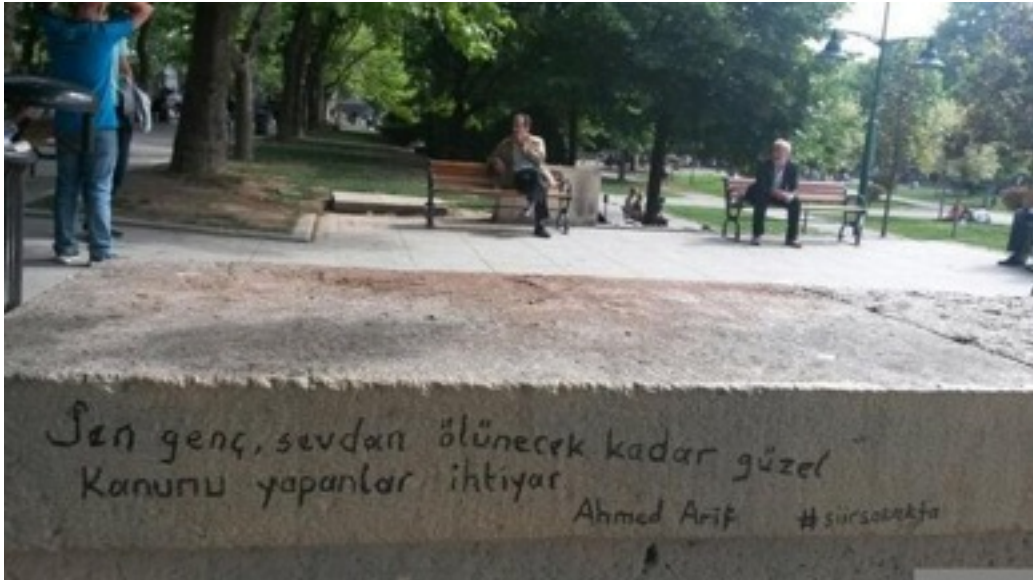 Sen genç, sevdan ölünecek kadar güzel
Kanunu yapanlar ihtiyar
Ahmed Arif #siirsokakta